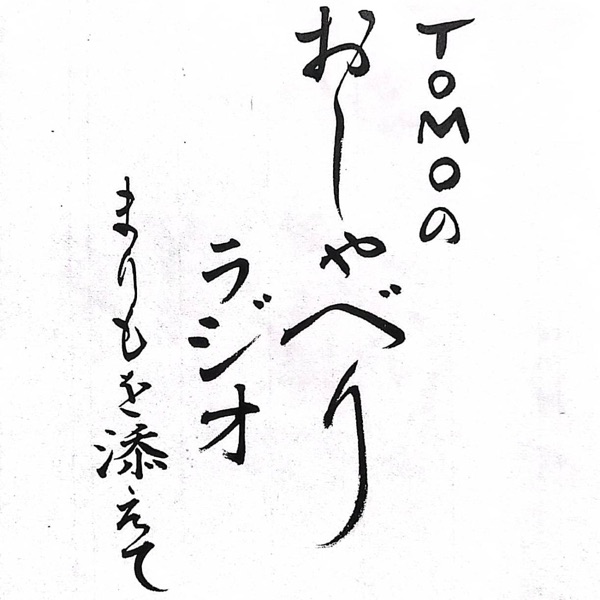 TOMOの
おしゃべり
ラジオ
まりもを添えて